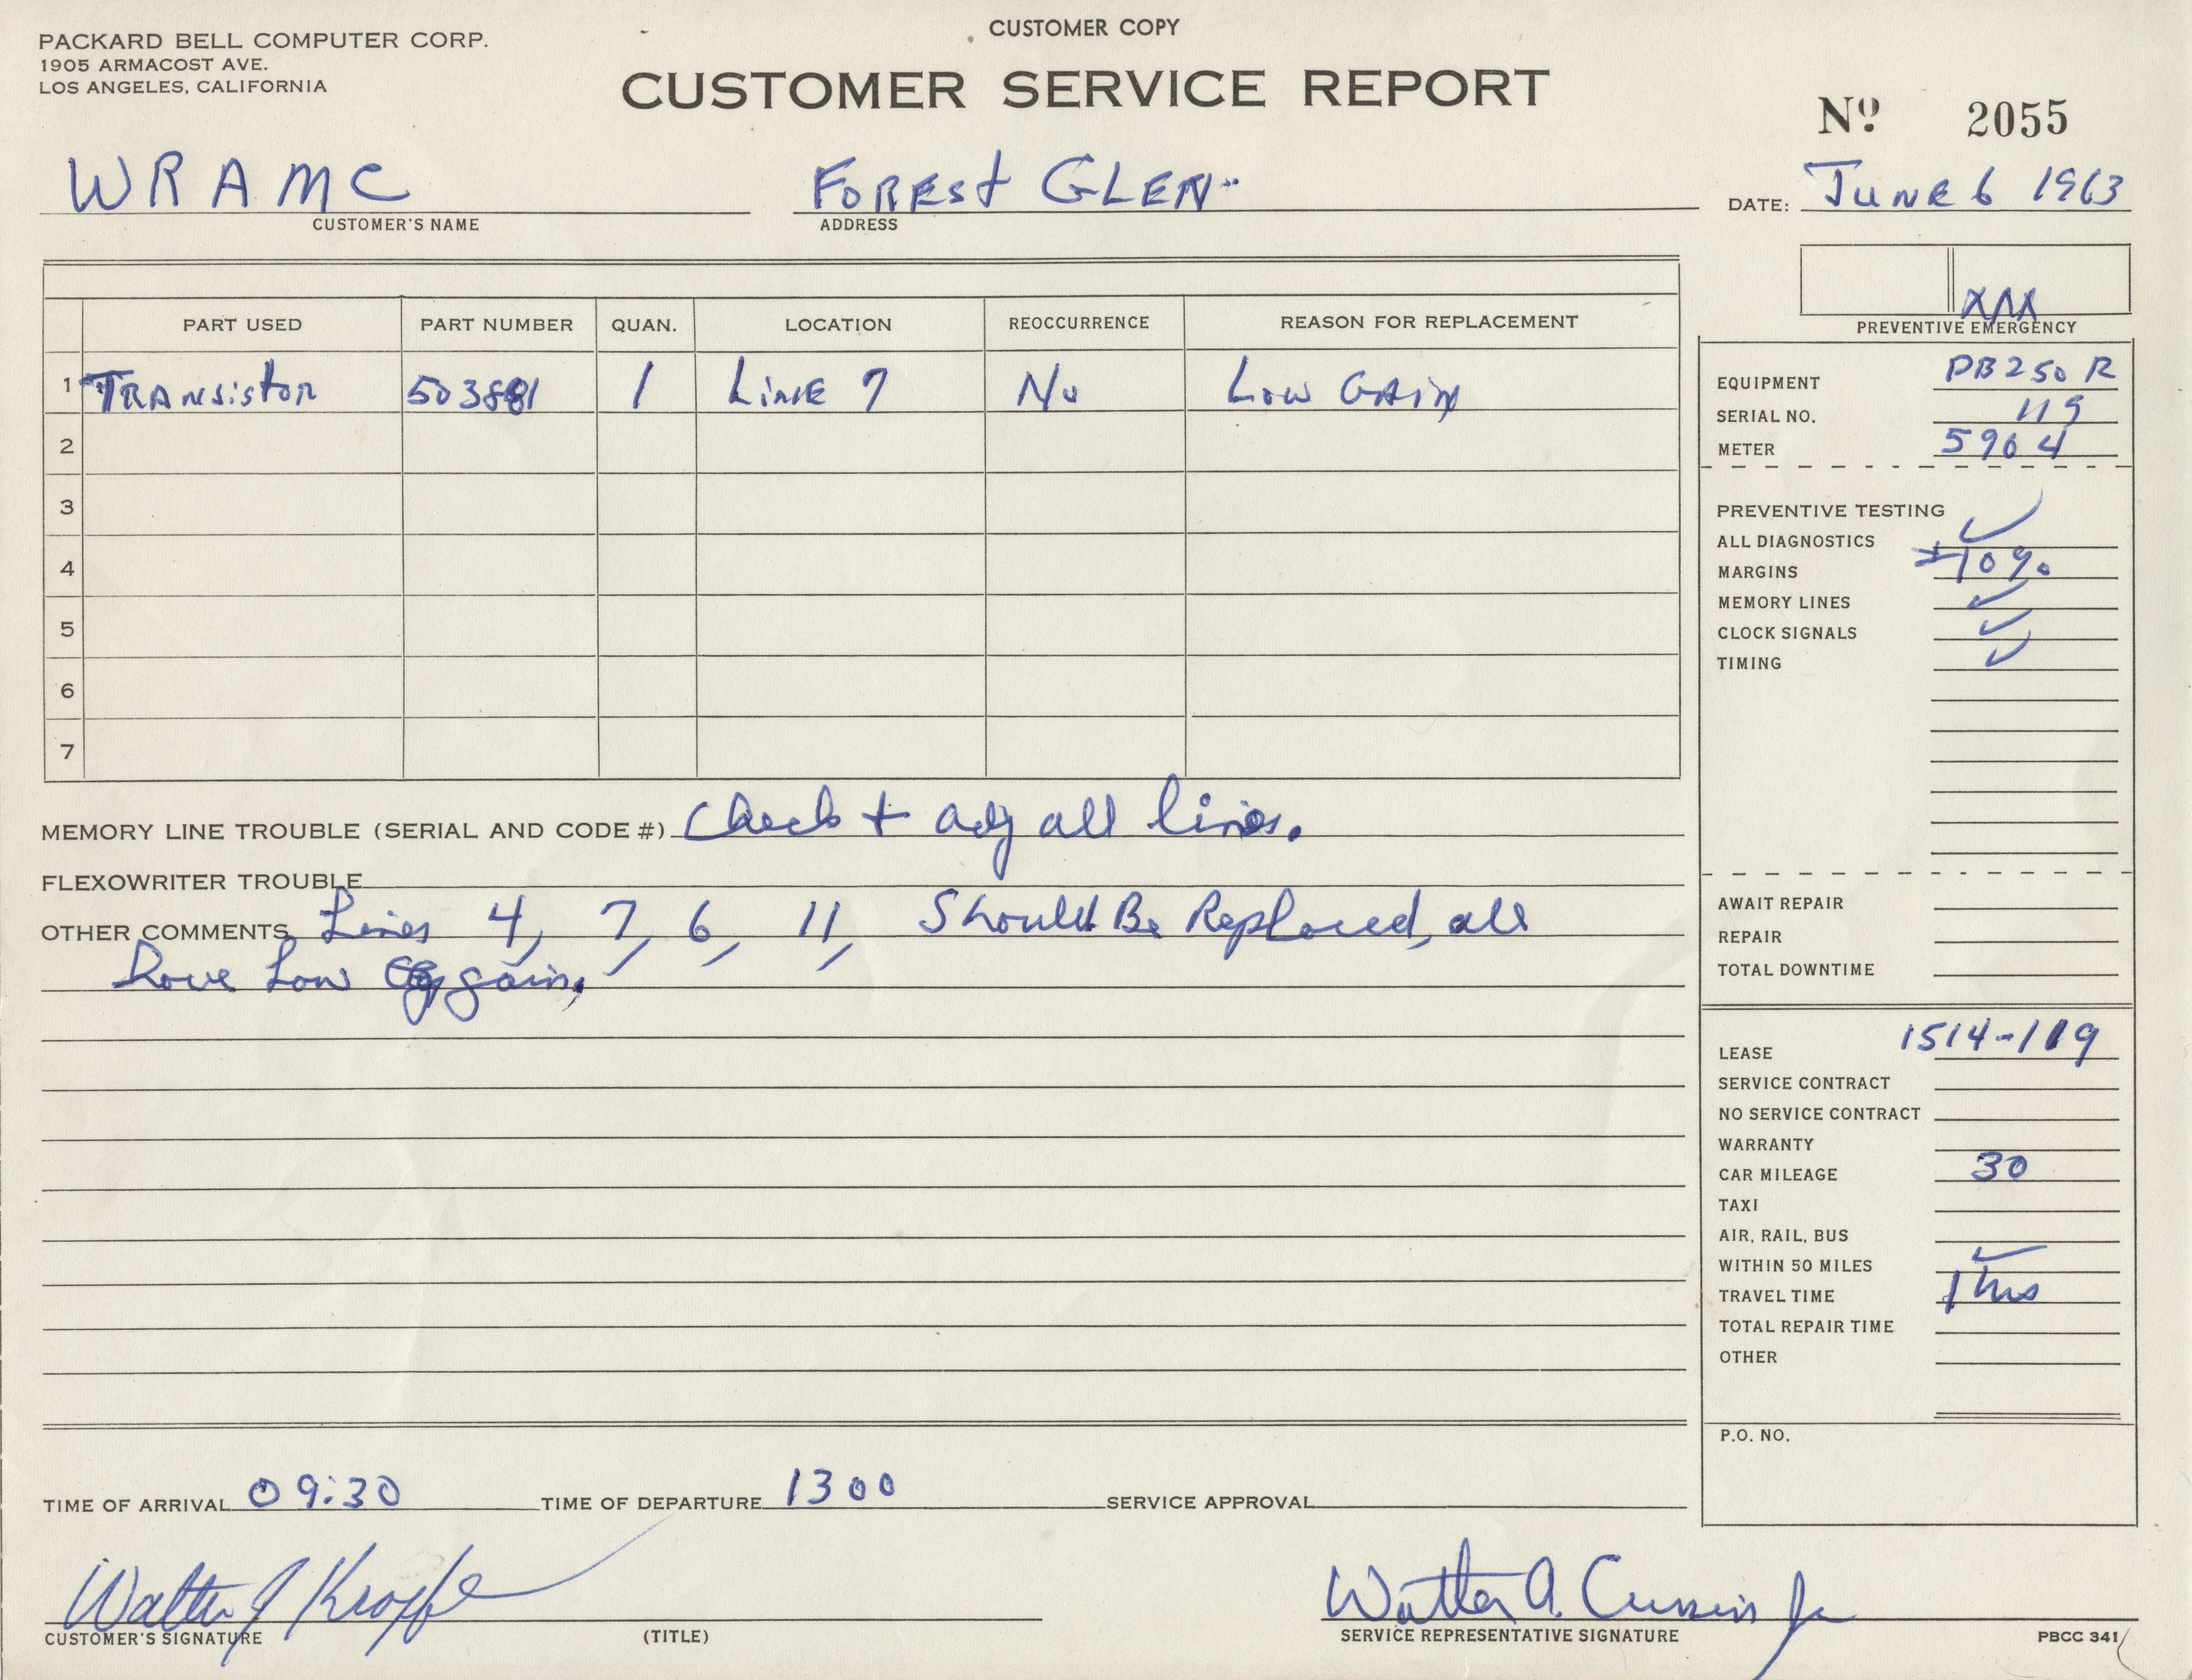 CUSTOMER COPY
PACKARD BELL COMPUTER CORP.
1905 ARMACOST AVE.
LOS ANGELES, CALIFORNIA
CUSTOMER SERVICE REPORT
Nº 2055
WRAMC FOREST GLEN DATE: JUNE 6 1963
CUSTOMER'S NAME ADDRESS
XXX
PREVENTIVE EMERGENCY
PART USED PART NUMBER QUAN. LOCATION REOCCURRENCE REASON FOR REPLACEMENT
1 TRANSISTOR 503881 1 LINE 7 No LOW GAIN
2
3
4
5
6
7
EQUIPMENT PB250 R
SERIAL NO. 119
METER 5904
PREVENTIVE TESTING
ALL DIAGNOSTICS
MARGINS ±10%
MEMORY LINES
CLOCK SIGNALS
TIMING
MEMORY LINE TROUBLE (SERIAL AND CODE #) Check + adj all lines.
FLEXOWRITER TROUBLE
OTHER COMMENTS Lines 4, 7, 6, 11, Should Be Replaced, all
have Low gain.
AWAIT REPAIR
REPAIR
TOTAL DOWNTIME
LEASE 1514-119
SERVICE CONTRACT
NO SERVICE CONTRACT
WARRANTY
CAR MILEAGE 30
TAXI
AIR, RAIL, BUS
WITHIN 50 MILES
TRAVEL TIME 1 hrs
TOTAL REPAIR TIME
OTHER
P.O. NO.
TIME OF ARRIVAL 09:30 TIME OF DEPARTURE 1300 SERVICE APPROVAL
Walter A. Jr
CUSTOMER'S SIGNATURE (TITLE) SERVICE REPRESENTATIVE SIGNATURE PBCC 341